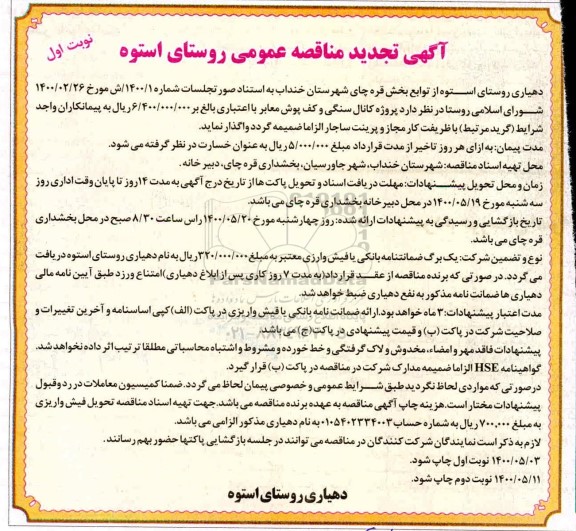 آگهی تجدید مناقصه عمومی روستای استوه
نوبت اول
دهیاری روستای استوه از توابع بخش قره چای شهرستان خنداب به استناد صورتجلسات شماره ۱۴۰۰/۱/ش مورخ ۱۴۰۰/۰۲/۲۶
شورای اسلامی روستا در نظر دارد پروژه کانال سنگی و کف پوش معابر با اعتباری بالغ بر ۶/۴۰۰/۰۰۰/۰۰۰ ریال به پیمانکاران واجد
شرایط (گرید مرتبط) با ظرفیت کار مجاز و پرینت ساجار الزاما ضمیمه گردد واگذار نماید.
مدت پیمان: به ازای هر روز تاخیر از مدت قرارداد مبلغ ۵/۰۰۰/۰۰۰ ریال به عنوان خسارت در نظر گرفته می شود.
محل تهیه اسناد مناقصه: شهرستان خنداب، شهر جاورسیان، بخشداری قره چای، دبیر خانه.
زمان و محل تحویل پیشنهادات: مهلت دریافت اسناد و تحویل پاکت ها از تاریخ درج آگهی به مدت ۱۴ روز تا پایان وقت اداری روز
سه شنبه مورخ ۱۴۰۰/۰۵/۱۹ در محل دبیر خانه بخشداری قره چای می باشد.
تاریخ بازگشایی و رسیدگی به پیشنهادات ارائه شده: روز چهارشنبه مورخ ۱۴۰۰/۰۵/۲۰ راس ساعت ۸/۳۰ صبح در محل بخشداری
قره چای می باشد.
نوع و تضمین شرکت: یک برگ ضمانتنامه بانکی یا فیش وارزی معتبر به مبلغ ۳۲۰/۰۰۰/۰۰۰ ریال به نام دهیاری روستای استوه دریافت
می گردد. در صورتی که برنده مناقصه از عقد قرارداد (به مدت ۷ روز کاری پس از ابلاغ دهیاری) امتناع ورزد طبق آیین نامه مالی
دهیاری ها ضمانت نامه مذکور به نفع دهیاری ضبط خواهد شد.
مدت اعتبار پیشنهادات: ۳ ماه خواهد بود. ارائه ضمانت نامه بانکی یا فیش واریزی در پاکت (الف) کپی اساسنامه و آخرین تغییرات و
صلاحیت شرکت در پاکت (ب) و قیمت پیشنهادی در پاکت (ج) می باشد.
پیشنهادات فاقد مهر و امضاء، مخدوش و لاک گرفتگی و خط خورده و مشروط و اشتباه محاسباتی مطلقا ترتیب اثر داده نخواهد شد.
گواهینامه HSE الزاما ضمیمه مدارک شرکت در مناقصه در پاکت (ب) قرار گیرد.
در صورتی که مواردی لحاظ نگردید طبق شرایط عمومی و خصوصی پیمان لحاظ می گردد. ضمنا کمیسیون معاملات در رد و قبول
پیشنهادات مختار است. هزینه چاپ آگهی مناقصه به عهده برنده مناقصه می باشد. جهت تهیه اسناد مناقصه تحویل فیش واریزی
به مبلغ ۷۰۰,۰۰۰ ریال به شماره حساب ۰۱۰۵۴۰۲۳۳۴۰۰۳ به نام دهیاری مذکور الزامی می باشد.
لازم به ذکر است نمایندگان شرکت کنندگان در مناقصه می توانند در جلسه بازگشایی پاکتها حضور بهم رسانند.
۱۴۰۰/۰۵/۰۳ نوبت اول چاپ شود.
۱۴۰۰/۰۵/۱۱ نوبت دوم چاپ شود.
دهیاری روستای استوه